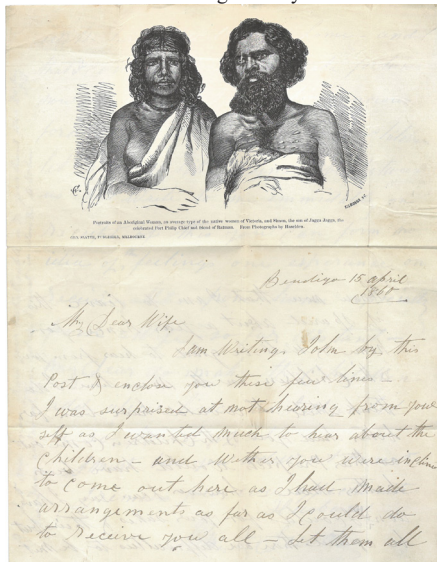 Portraits of an Aboriginal Woman, an average type of the native women of Victoria, and Simon, the son of Jagga Jagga, the
celebrated Port Philip Chief and friend of Batman. From Photographs by Haseldon.
Bendigo 15 april
1860
My Dear Wife
I am Writing John by this
Post & enclose you these few lines
I was surprised at not hearing from your
self as I wanted much to hear about the
Children – and Wether you were inclined
to come out here as I had made
arrangements as far as I could do
to receive you all – Let them all